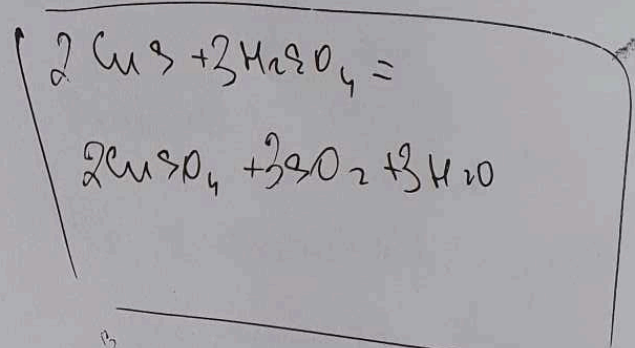 2CuS + 3H₂SO₄ =
2CuSO₄ + 3SO₂ + 3H₂O